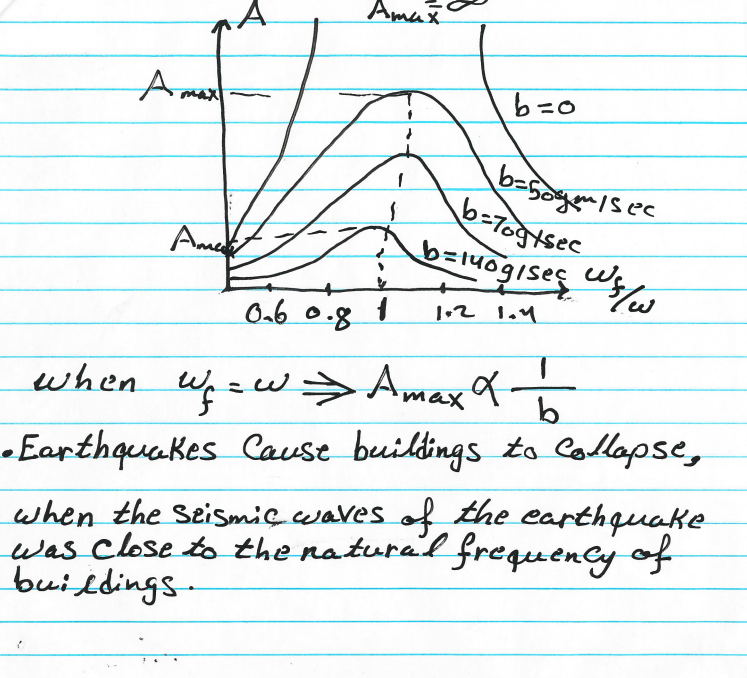 A
Amax = ∞
Amax
b=0
b=50gm/sec
b=70g/sec
Amax
b=140g/sec
ωf/ω
0.6 0.8 1 1.2 1.4
when ωf = ω ⇒ Amax ∝ 1/b
• Earthquakes Cause buildings to Collapse,
when the seismic waves of the earthquake
was close to the natural frequency of
buildings.